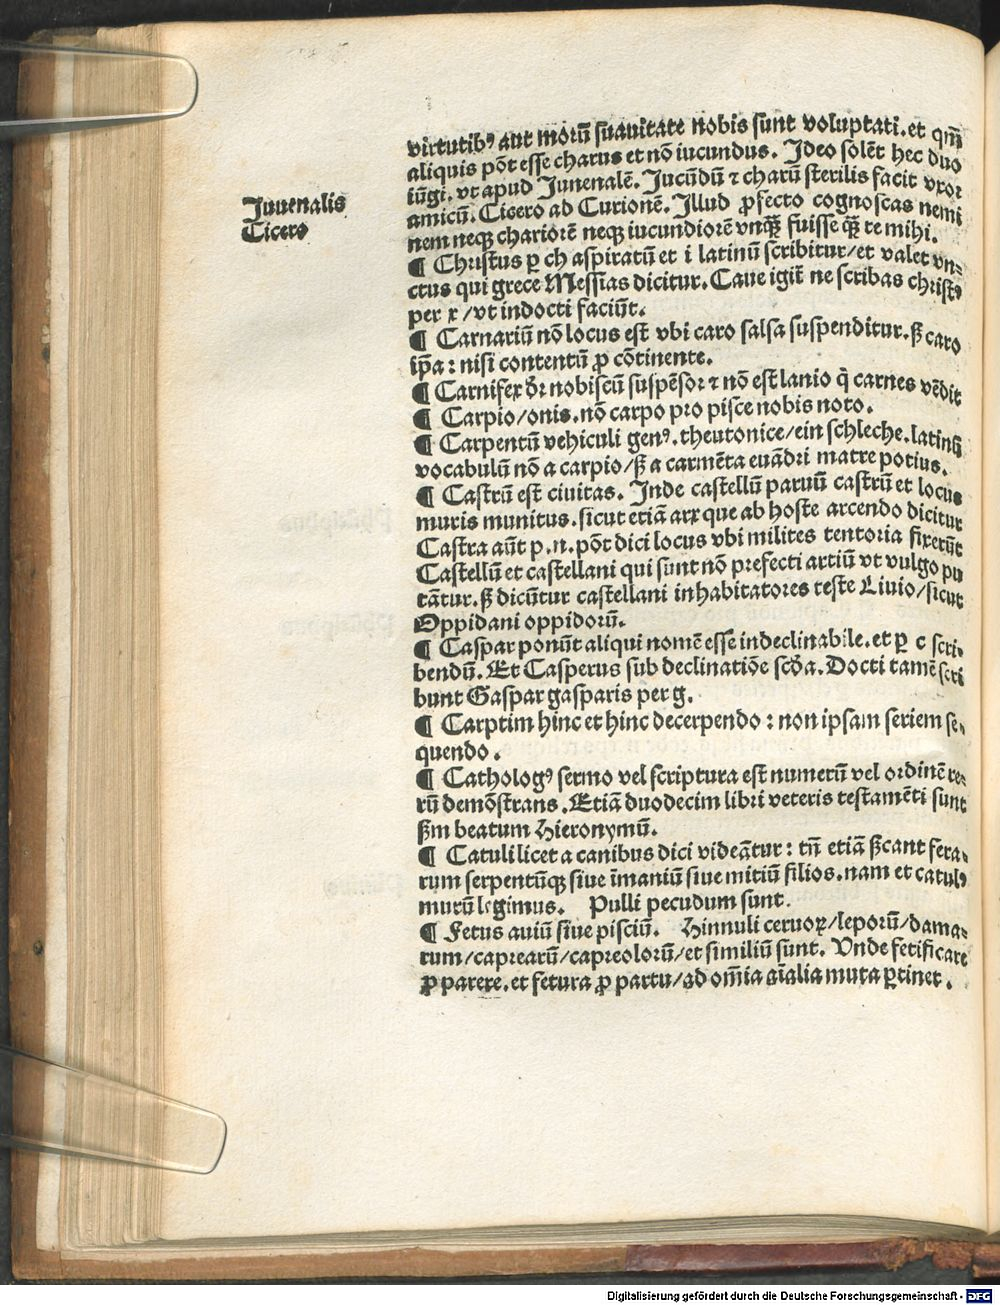 virtutibꝰ aut morū suauitate nobis sunt voluptati. et qm̄
aliquis pōt esse charus et nō iucundus. Ideo solēt hec duo
iūgi. vt apud Juuenalē. Jucūdū ⁊ charū sterilis facit vxor
Juuenalis
amicū. Cicero ad Curionē. Illud ꝓfecto cognoscas nemi
Cicero
nem neqꝫ chariorē neqꝫ iucundiorē vnqꝫ̄ fuisse qꝫ̄ te mihi.
¶ Christus ꝑ ch aspiratū et i latinū scribitur/et valet vn⸗
ctus qui grece Messias dicitur. Caue igit̄ ne scribas christꝰ
per x /vt indocti faciūt.
¶ Carnariū nō locus est vbi caro salsa suspenditur. ß caro
ip̄a : nisi contentū ꝓ cōtinente.
¶ Carnifex dr̄ nobiscū suspēsor ⁊ nō est lanio q̄ carnes vēdit
¶ Carpio/onis. nō carpo pro pisce nobis noto.
¶ Carpentū vehiculi genꝰ. theutonice/ein schleche. latinū
vocabulū nō a carpio/ß a carmēta euādri matre potius.
¶ Castrū est ciuitas. Inde castellū paruū castrū et locus
muris munitus. sicut etiā arx que ab hoste arcendo dicitur
Castra aūt p.n. pōt dici locus vbi milites tentoria fixerūt
Castellū et castellani qui sunt nō prefecti artiū vt vulgo pu
tātur. ß dicūtur castellani inhabitatores teste Liuio/sicut
Oppidani oppidorū.
¶ Caspar ponūt aliqui nomē esse indeclinabile. et ꝑ c scri⸗
bendū. Et Casperus sub declinatiōe scḋa. Docti tamē scri
bunt Gaspar gasparis per g.
¶ Carptim hinc et hinc decerpendo : non ipsam seriem se⸗
quendo.
¶ Cathologꝰ sermo vel scriptura est numerū vel ordinē re⸗
rū demōstrans. Etiā duodecim libri veteris testamēti sunt
ßm beatum Hieronymū.
¶ Catuli licet a canibus dici videātur : tn̄ etiā ßcant fera⸗
rum serpentūqꝫ siue īmaniū siue mitiū filios. nam et catulꝰ
murū legimus. Pulli pecudum sunt.
¶ Fetus auiū siue pisciū. Hinnuli ceruoꝝ/leporū/dama⸗
rum/caprearū/capreolorū/et similiū sunt. Vnde fetificare
ꝓ parere. et fetura ꝓ partu/ad om̄ia aīalia muta ꝑtinet.
Digitalisierung gefördert durch die Deutsche Forschungsgemeinschaft - DFG